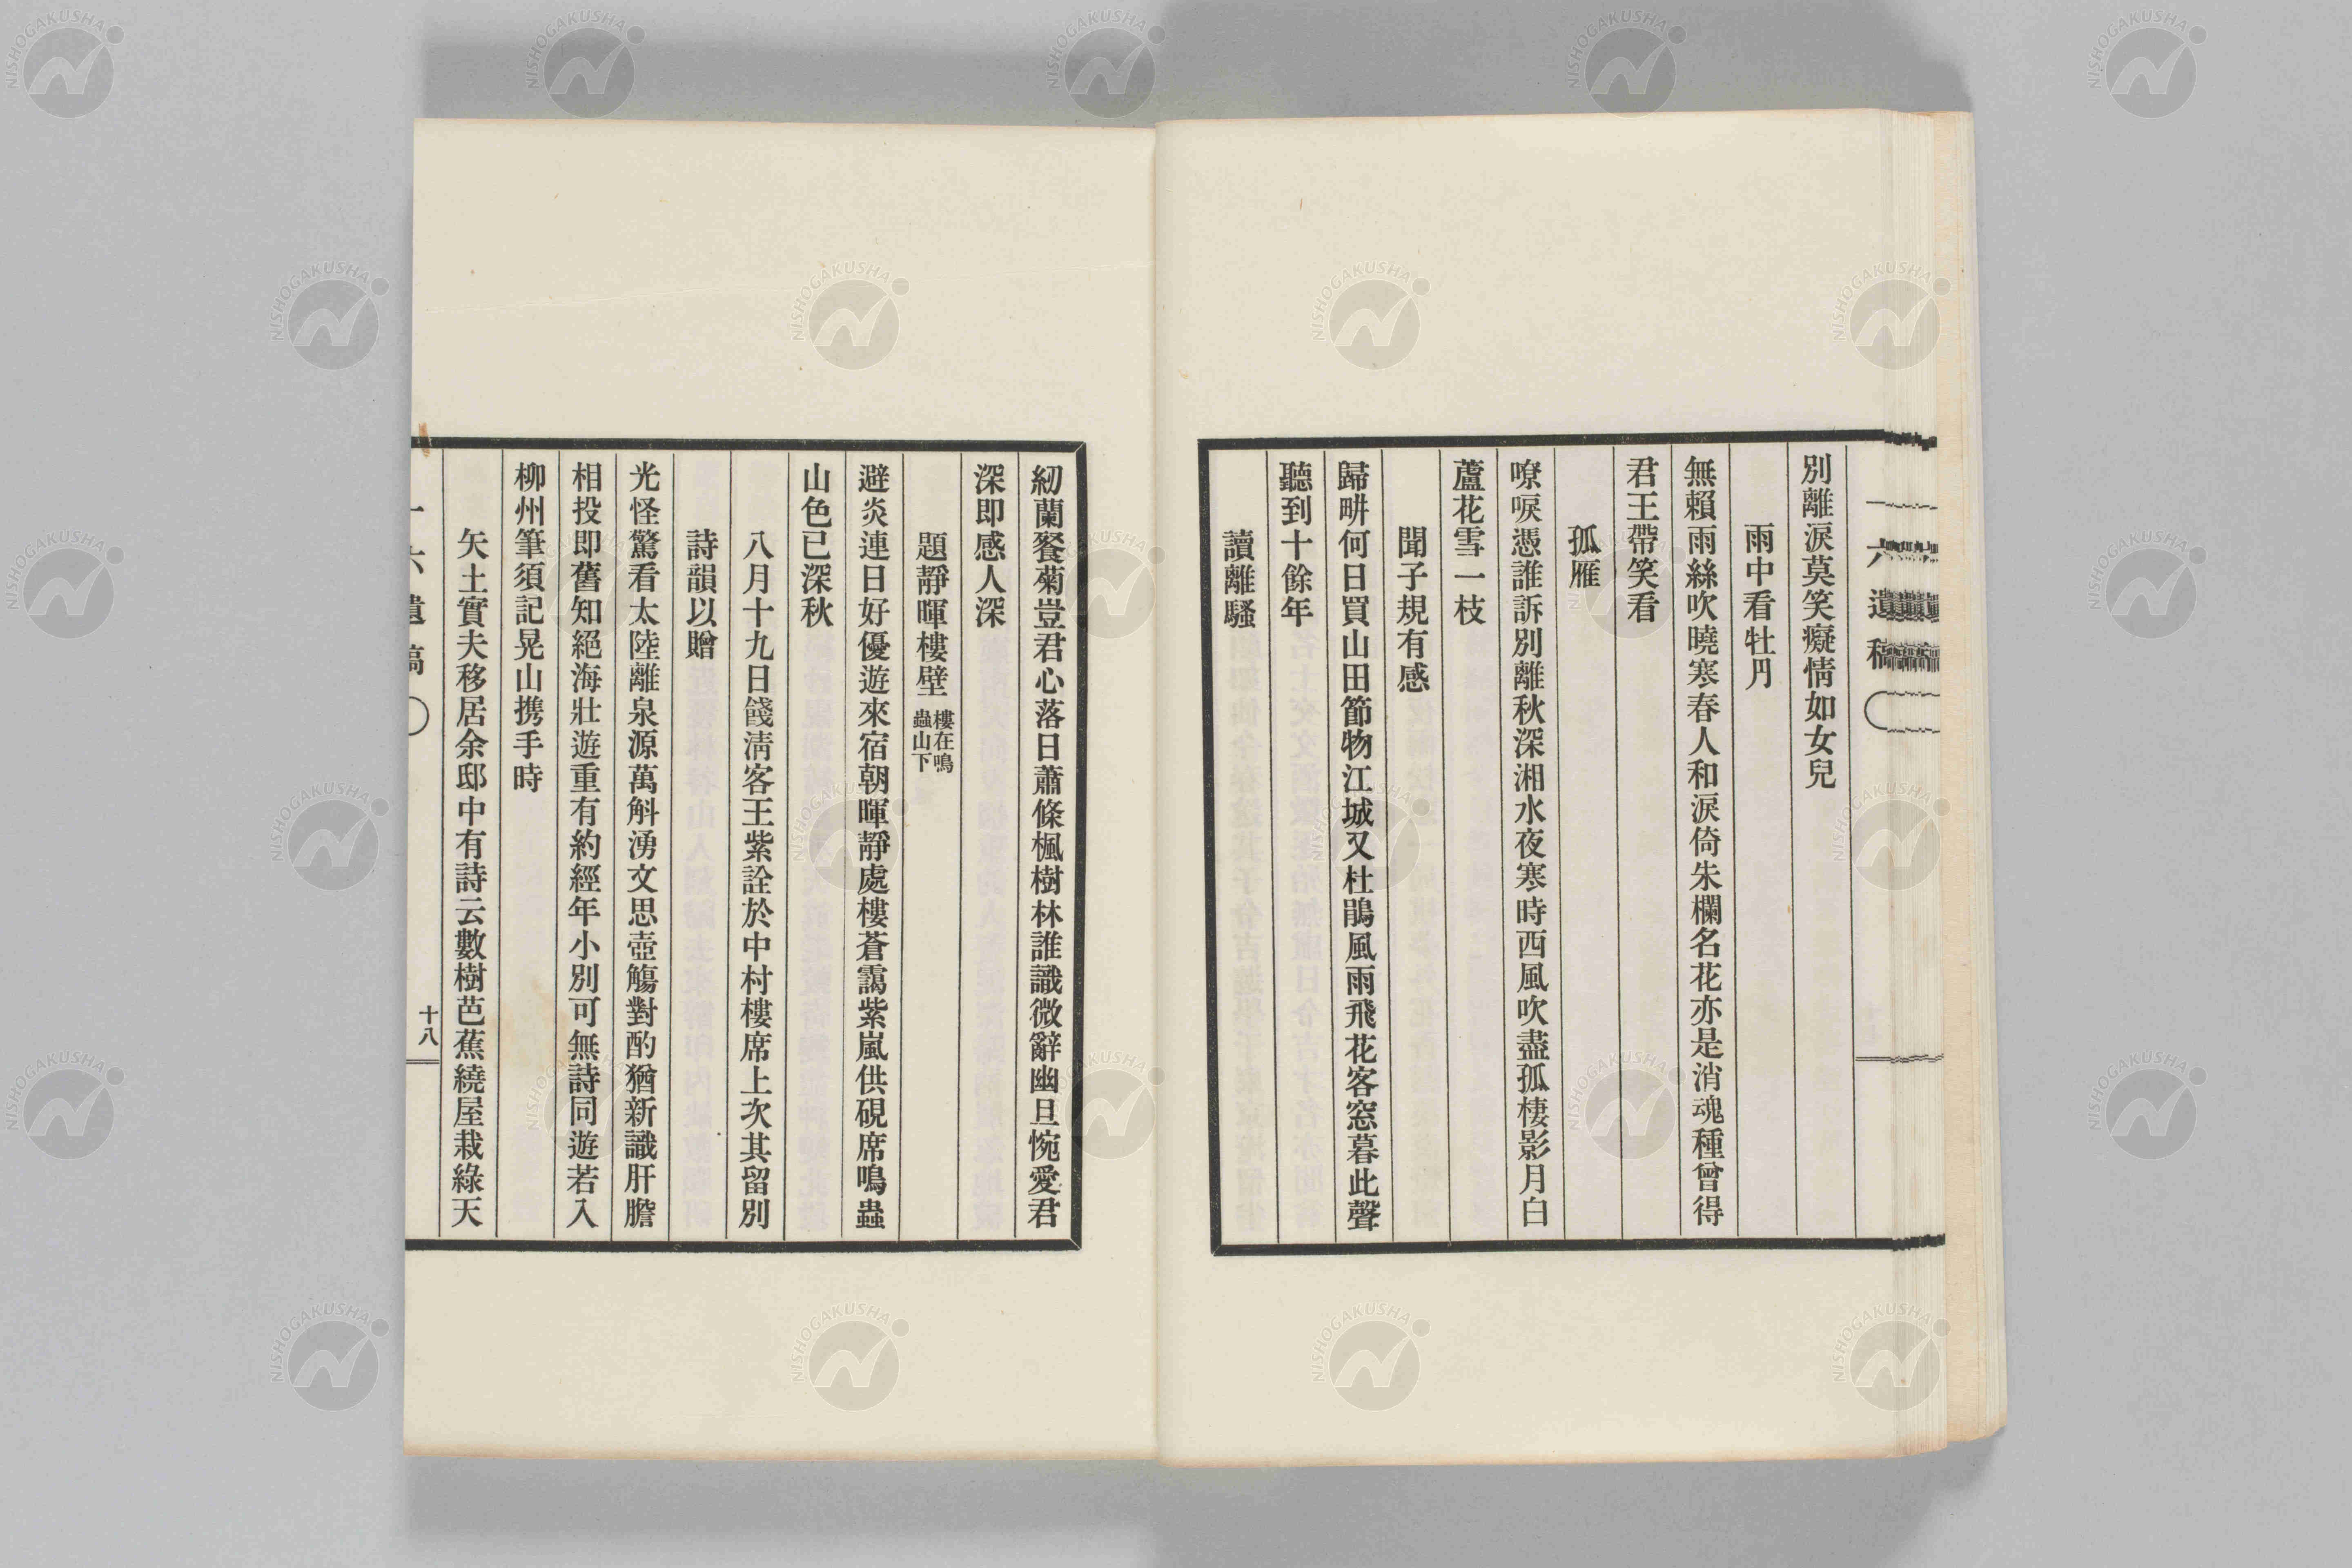 一六遺稿
別離淚莫笑癡情如女兒
雨中看牡丹
無賴雨絲吹曉寒春人和淚倚朱欄名花亦是消魂種曾得
君王帶笑看
孤雁
嘹唳憑誰訴別離秋深湘水夜寒時西風吹盡孤棲影月白
蘆花雪一枝
聞子規有感
歸畊何日買山田節物江城又杜鵑風雨飛花客窓暮此聲
聽到十餘年
讀離騷
紉蘭餐菊豈君心落日蕭條楓樹林誰識微辭幽旦惋愛君
深即感人深
題靜暉樓壁 樓在鳴
蟲山下
避炎連日好優遊來宿朝暉靜處樓蒼靄紫嵐供硯席鳴蟲
山色已深秋
八月十九日餞淸客王紫詮於中村樓席上次其留別
詩韻以贈
光怪驚看太陸離泉源萬斛湧文思壺觴對酌猶新識肝膽
相投即舊知絕海壯遊重有約經年小別可無詩同遊若入
柳州筆須記晃山携手時
矢土實夫移居余邸中有詩云數樹芭蕉繞屋栽綠天
一六遺稿
十八
NISHOGAKUSHA